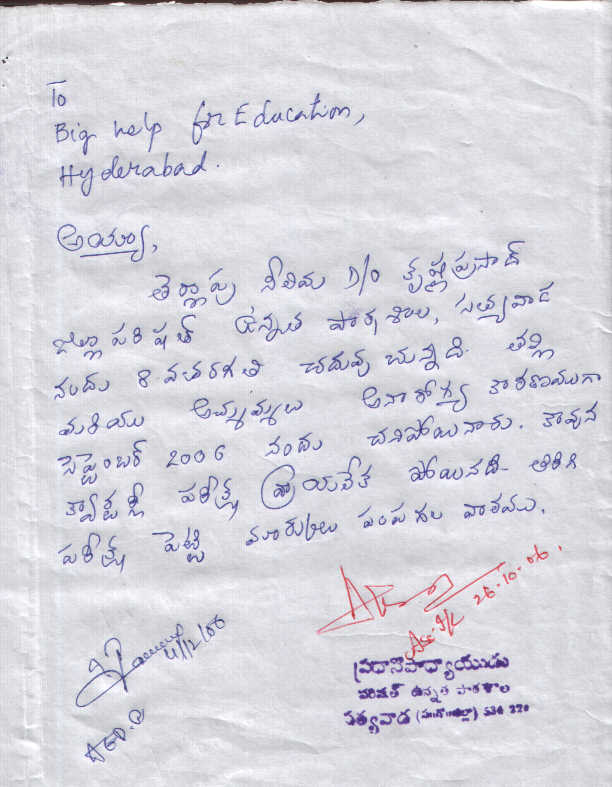 To
Big help for Education,
Hyderabad.
అయ్యా,
తెర్లాపు నీలిమ D/o కృష్ణ ప్రసాద్
జిల్లా పరిషత్ ఉన్నత పాఠశాల, సత్యవాడ
నందు 8 వతరగతి చదువు చున్నది. తల్లి
మరియు అమ్మమ్మలు అనారోగ్య కారణముగా
సెప్టెంబర్ 2006 నందు చనిపోయినారు. కావున
క్వార్టర్లీ పరీక్ష వ్రాయలేక పోయినది. తిరిగి
పరీక్ష పెట్టి మార్కులు పంపగల వారము.
26.10.06.
4/12/06
ప్రధానోపాధ్యాయుడు
పరిషత్ ఉన్నత పాఠశాల
సత్యవాడ (ప.గో.జిల్లా) 534 220